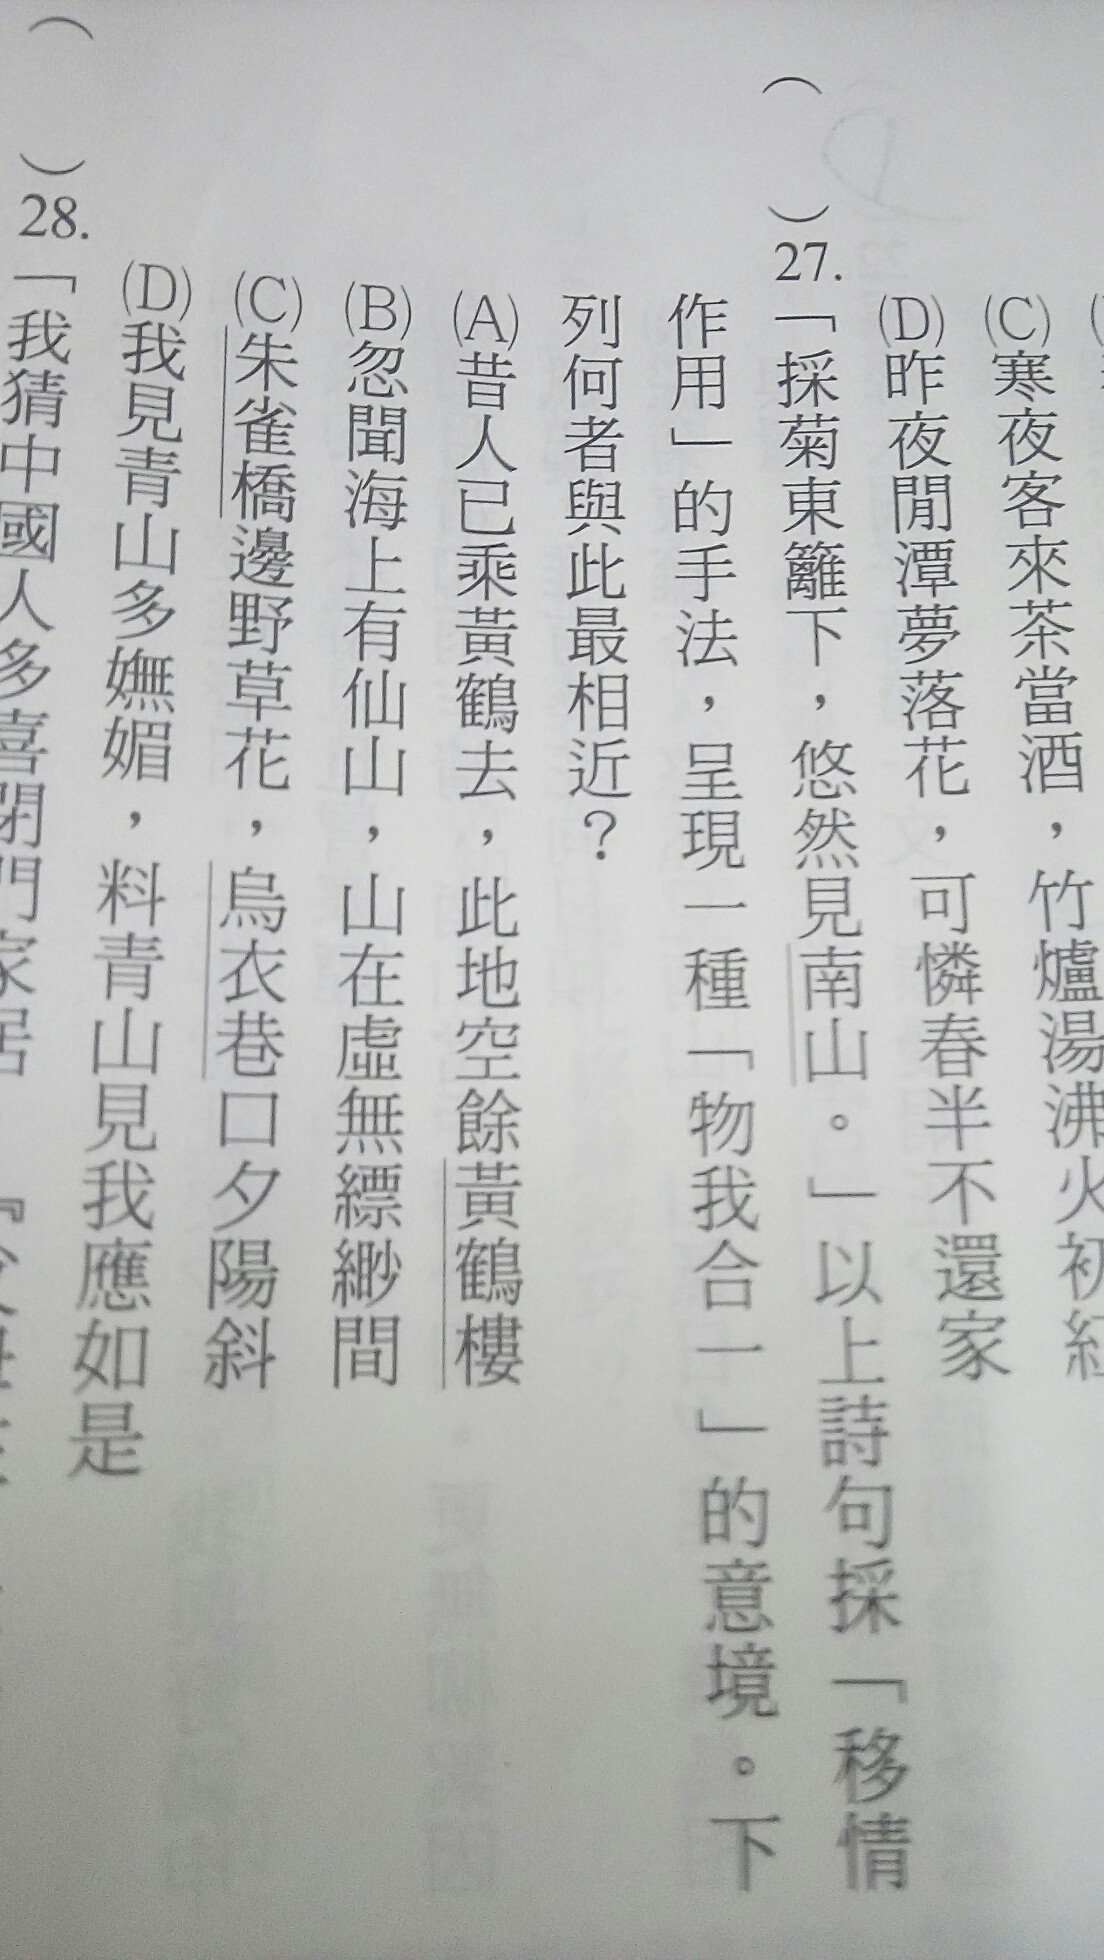 (C)寒夜客來茶當酒，竹爐湯沸火初紅
(D)昨夜閒潭夢落花，可憐春半不還家
（　）27.「採菊東籬下，悠然見南山。」以上詩句採「移情
作用」的手法，呈現一種「物我合一」的意境。下
列何者與此最相近？
(A)昔人已乘黃鶴去，此地空餘黃鶴樓
(B)忽聞海上有仙山，山在虛無縹緲間
(C)朱雀橋邊野草花，烏衣巷口夕陽斜
(D)我見青山多嫵媚，料青山見我應如是
（　）28.「我猜中國人多喜閉門家居